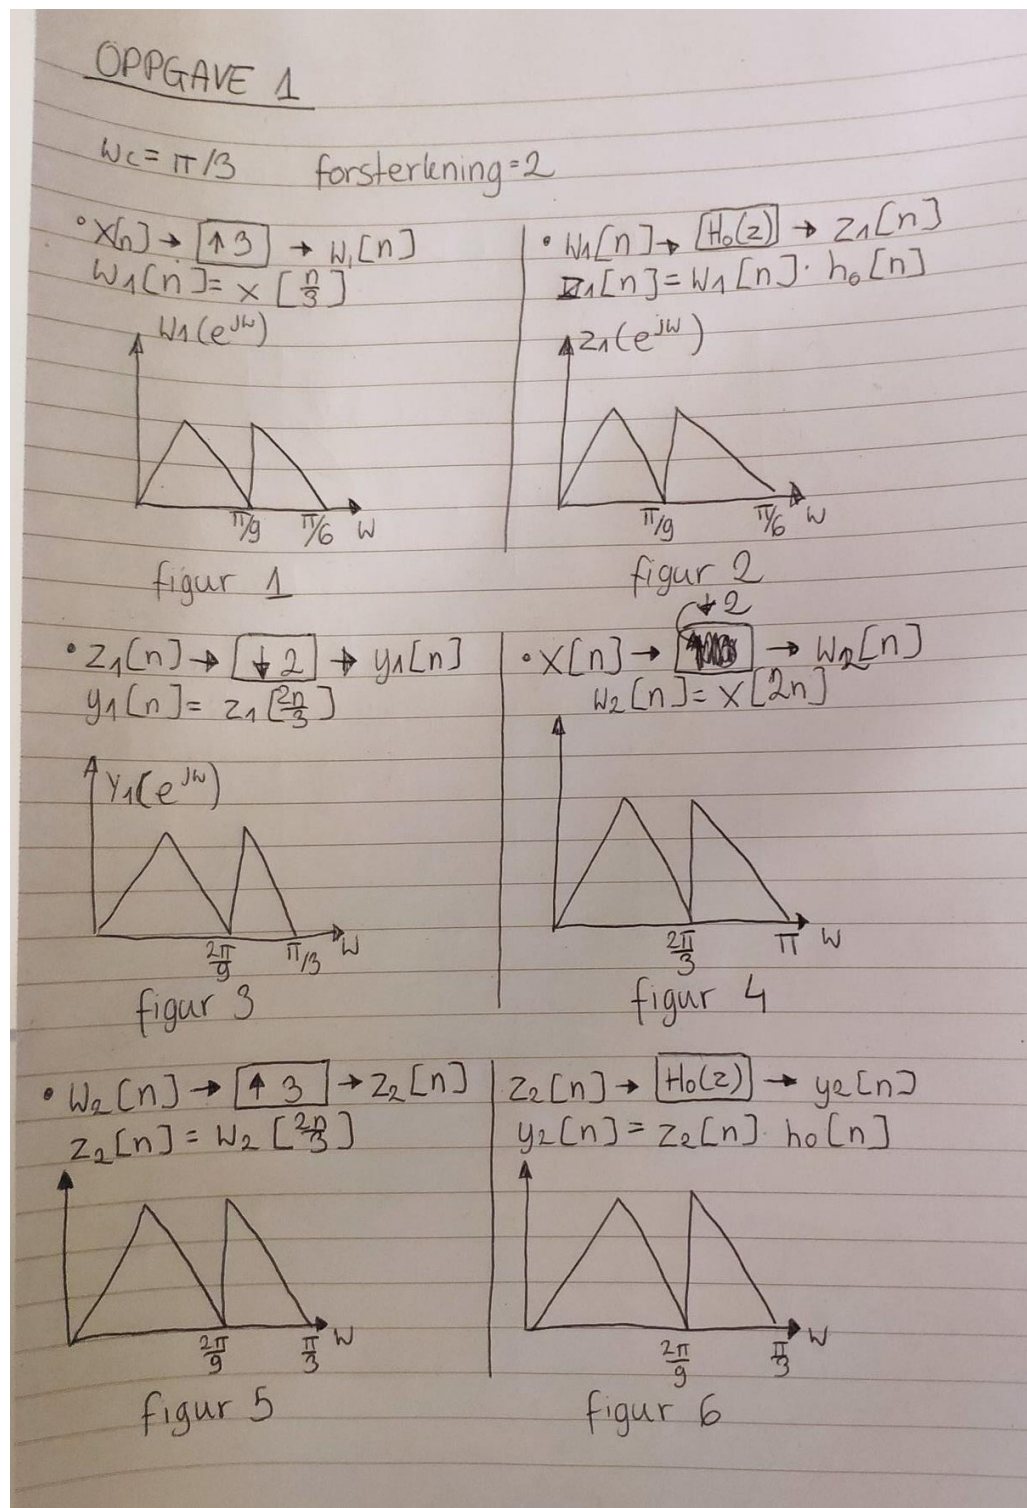 OPPGAVE 1
wc = π/3 forsterkning = 2
• x[n] → ↑3 → W1[n]
W1[n] = x[n/3]
W1(e^jw)
π/9 π/6 w
figur 1
• W1[n] → H0(z) → Z1[n]
Z1[n] = W1[n] · h0[n]
Z1(e^jw)
π/9 π/6 w
figur 2
• Z1[n] → ↓2 → y1[n]
y1[n] = Z1[2n/3]
Y1(e^jw)
2π/9 π/3 w
figur 3
↓2
• X[n] → → W2[n]
W2[n] = x[2n]
2π/3 π w
figur 4
• W2[n] → ↑3 → Z2[n]
Z2[n] = W2[2n/3]
2π/9 π/3 w
figur 5
Z2[n] → H0(z) → y2[n]
y2[n] = Z2[n] · h0[n]
2π/9 π/3 w
figur 6